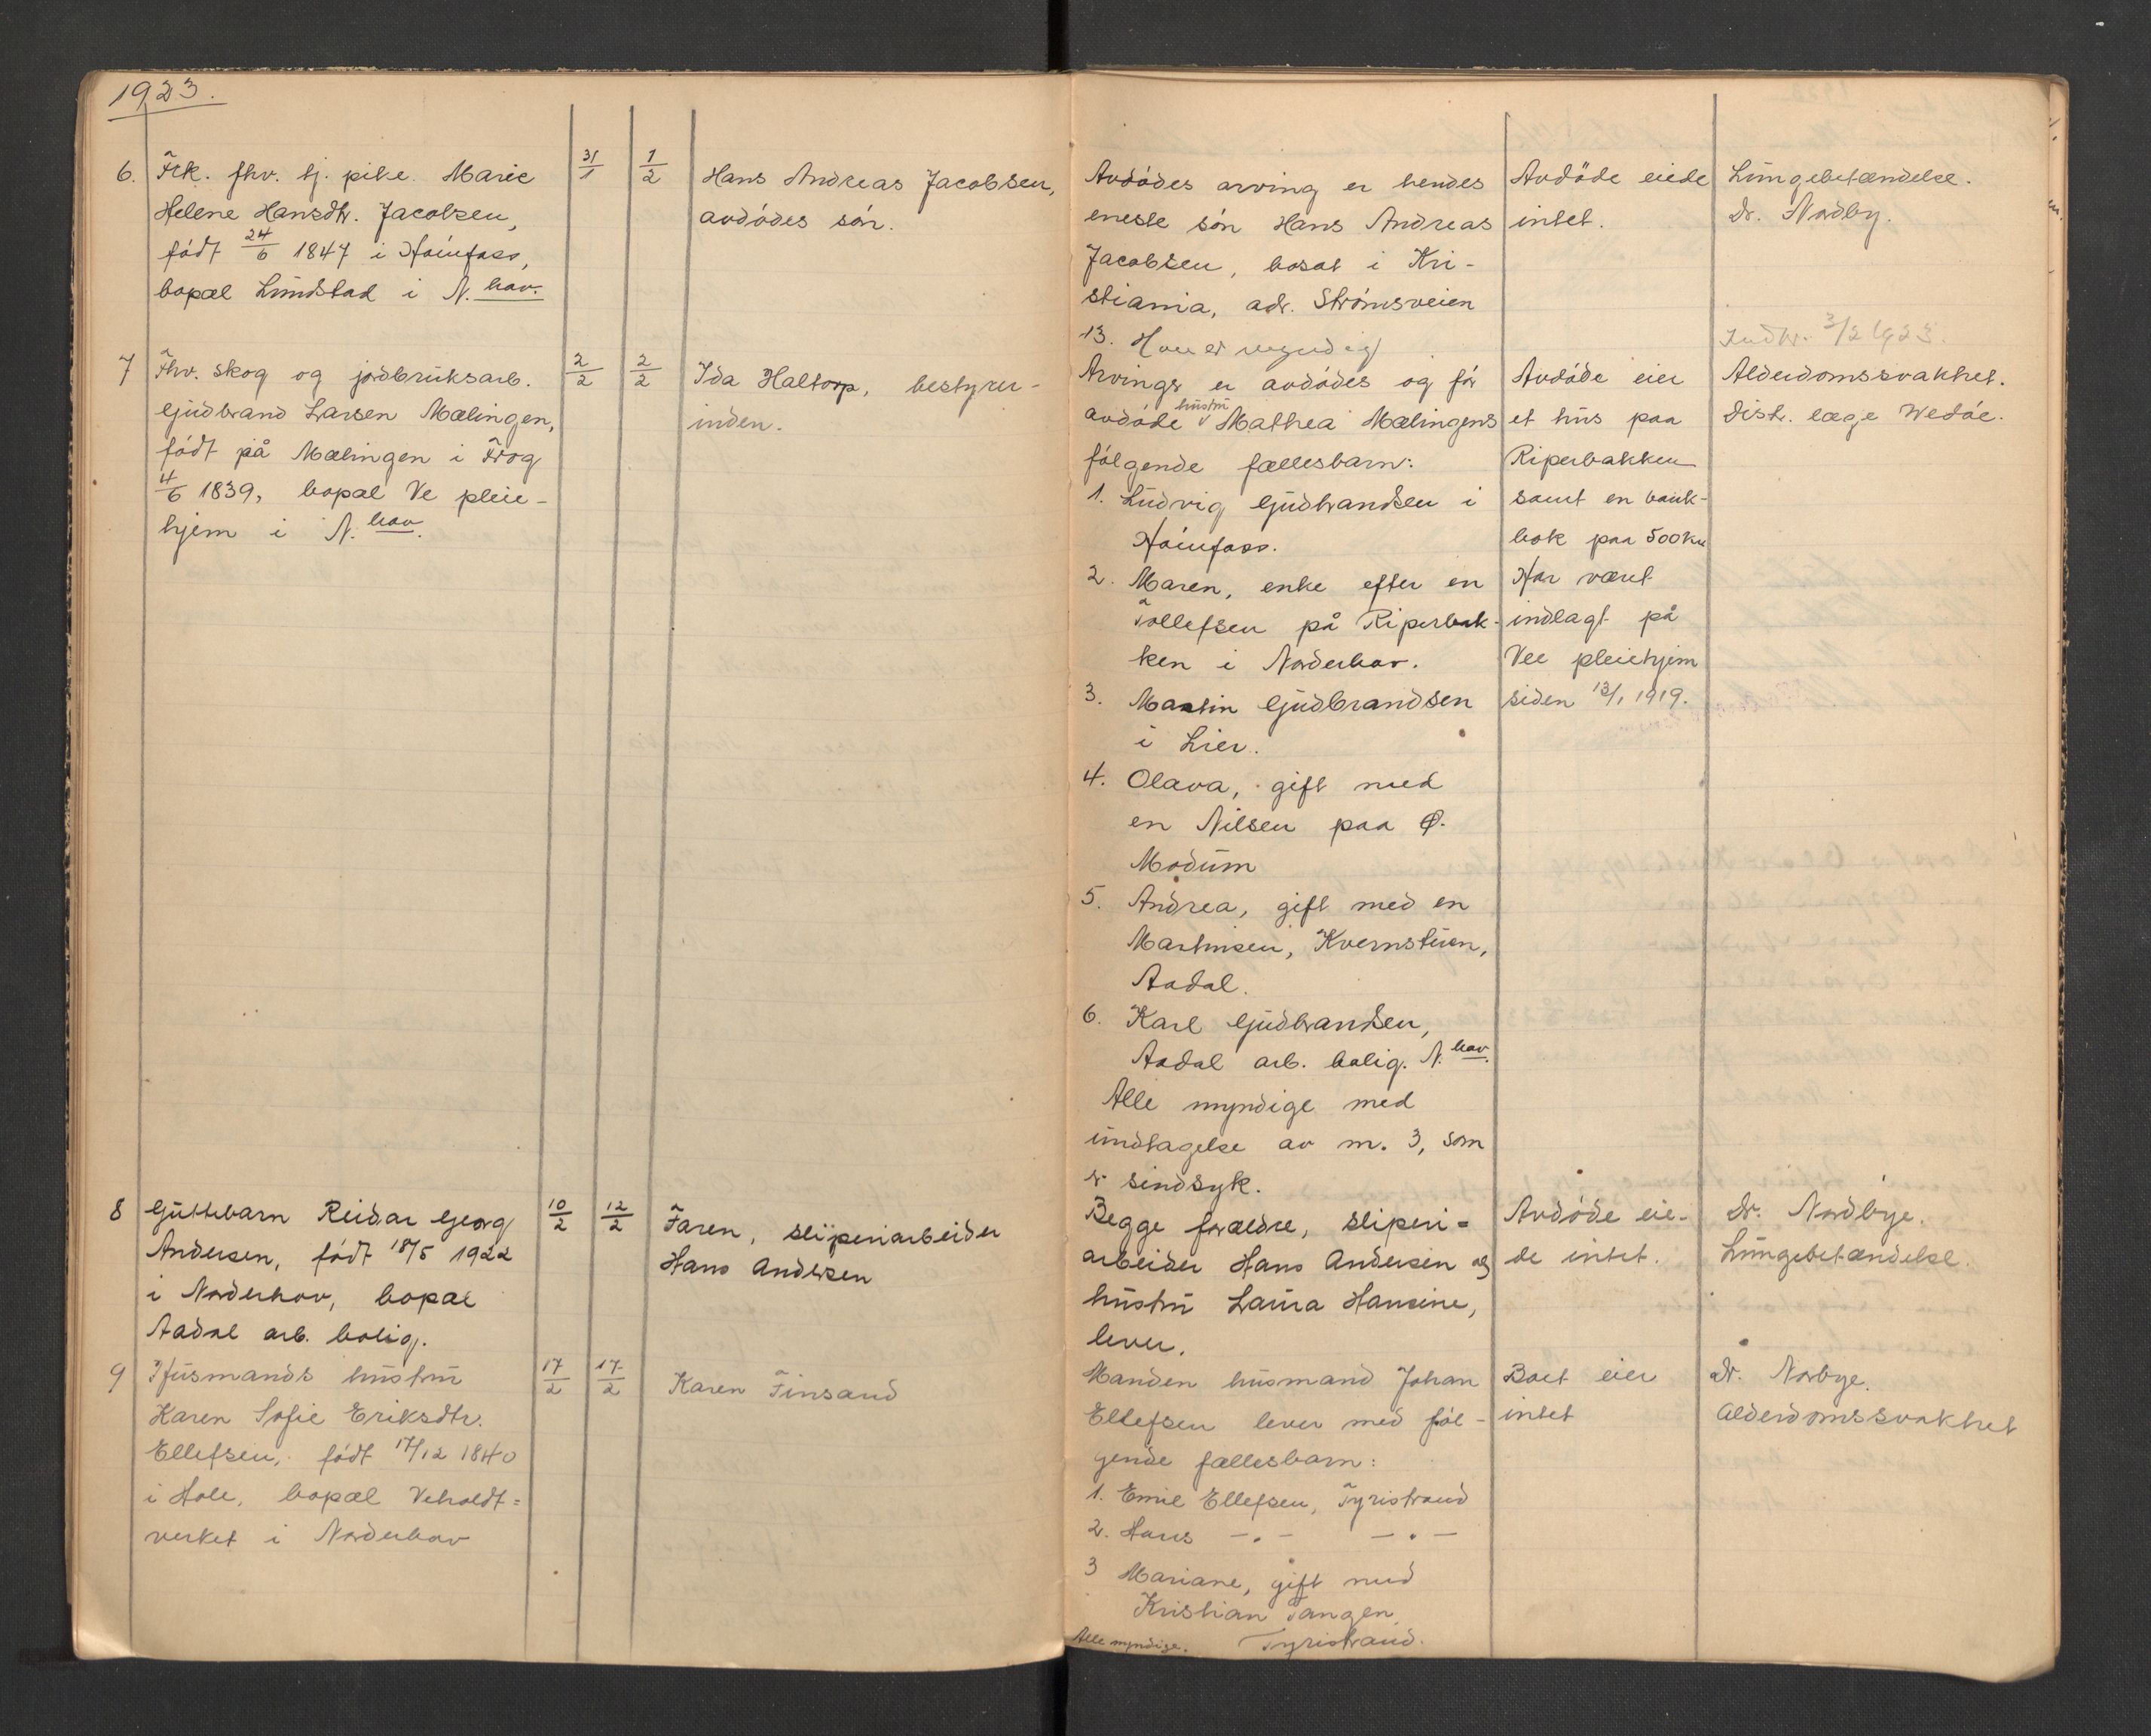 1923.
6.
Frk. fhv. tj. pike Marie
Helene Hansdtr. Jacobsen,
født 24/6 1847 i Hønefoss,
bopæl Lundstad i N.hov.
31/1
1/2
Hans Andreas Jacobsen,
avdødes søn.
Avdødes arving er hendes
eneste søn Hans Andreas
Jacobsen, bosat i Kri-
stiania, adr. Strømsveien
13. Han er myndig
Avdøde eiede
intet.
Lungebetændelse.
Dr. Nordby.
Indbr. 3/2 1923.
7
Fhv. skog og jordbruksarb.
Gudbrand Larsen Mælingen,
født på Mælingen i Frog
4/6 1839, bopæl Ve pleie-
hjem i N.hov.
2/2
2/2
Ida Haltorp, bestyrer-
inden.
Arvinger er avdødes og før
avdøde hustru Mathea Mælingens
følgende fællesbarn:
1. Ludvig Gudbrandsen i
Hønefoss.
2. Maren, enke efter en
Tollefsen på Riperbak-
ken i Norderhov.
3. Martin Gudbrandsen
i Lier.
4. Olava, gift med
en Nilsen paa Ø.
Modum
5. Andrea, gift med en
Martinsen, Kvernstuen,
Aadal.
6. Karl Gudbrandsen,
Aadal arb. bolig. N.hov.
Alle myndige med
undtagelse av nr. 3, som
er sindsyk.
Avdøde eier
et hus paa
Riperbakken
samt en bank-
bok paa 500 kr
Har været
indlagt på
Vee pleiehjem
siden 13/1 1919.
Alderdomssvakhet.
Distr. læge Wedøe.
8
Guttebarn Reidar Georg
Andersen, født 18/5 1922
i Norderhov, bopæl
Aadal arb. bolig.
10/2
12/2
Faren, sliperiarbeider
Hans Andersen
Begge forældre, sliperi=
arbeider Hans Andersen og
hustru Laura Hansine,
lever.
Avdøde eie-
de intet.
Dr. Nordbye.
Lungebetændelse.
9
Husmands hustru
Karen Sofie Eriksdtr.
Ellefsen, født 17/12 1840
i Hole, bopæl Veholdt=
verket i Norderhov
17/2
17/2
Karen Finsand
Manden husmand Johan
Ellefsen lever med føl-
gende fællesbarn:
1. Emil Ellefsen, Tyristrand
2. Hans -.- -.-
3 Mariane, gift med
Kristian Tangen
Alle myndige. Tyristrand.
Boet eier
intet
Dr. Norbye.
Alderdomssvakhet